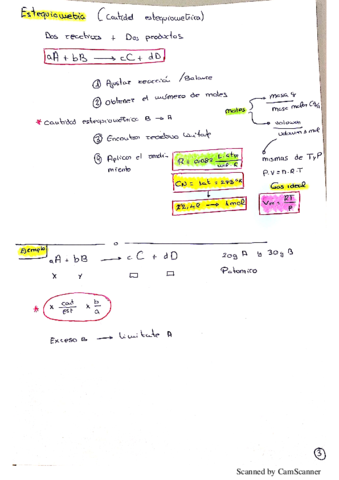 Estequiometría (Cantidad estequiométrica)
Dos reactivos + Dos productos
aA + bB → cC + dD
① Ajustar reacción / Balance
② Obtener el número de moles
moles
masa g
masa molar
volumen
volumen mol
* cantidad estequiométrica B → A
③ Encontrar reactivo limitante
Aplicar el rendimiento
R = 0.082
CN = 1 at + 273 ºK
→ 1 mol
mismas de T y P
P.V = n.R.T
Gas ideal
Ejemplo
aA + bB → cC + dD
20g A y 30g B
x y
* x cad/est x b/a
Exceso B → Limitante A
3
Scanned by CamScanner